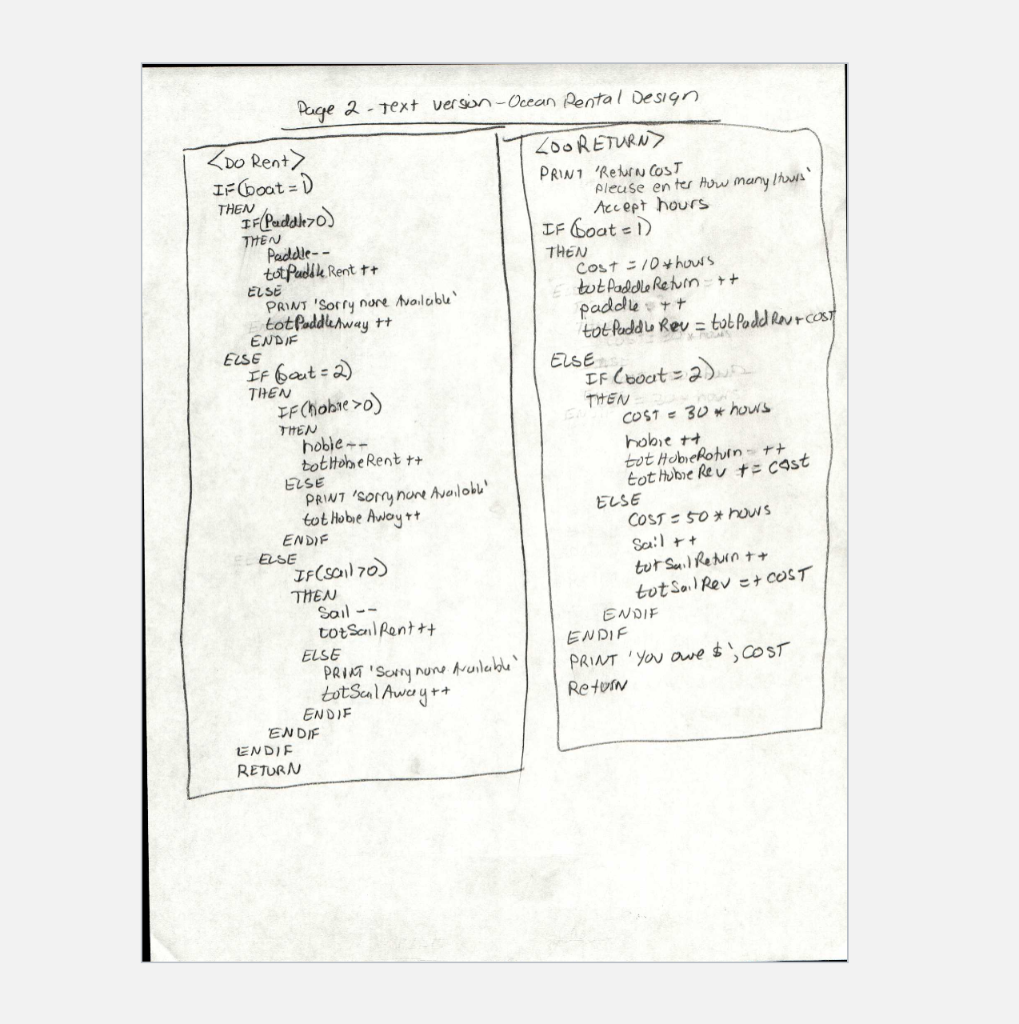 Page 2 - Text Version - Ocean Rental Design
<Do Rent>
IF(boat = 1)
THEN
IF(Paddle>0)
THEN
Paddle--
totPaddleRent ++
ELSE
PRINT 'Sorry none Available'
totPaddleAway ++
ENDIF
ELSE
IF(boat = 2)
THEN
IF(hobie >0)
THEN
hobie--
totHobieRent ++
ELSE
PRINT 'Sorry none Available'
totHobie Away ++
ENDIF
ELSE
IF(sail >0)
THEN
Sail --
totSailRent ++
ELSE
PRINT 'Sorry none Available'
totSailAway ++
ENDIF
ENDIF
ENDIF
RETURN
<DO RETURN>
PRINT 'Return Cost
please enter How many Hours'
Accept hours
IF (boat = 1)
THEN
COST = 10 * hours
totPaddleReturn ++
paddle ++
totPaddle Rev = totPaddRev + COST
ELSE
IF (boat = 2)
THEN
COST = 30 * hours
hobie ++
totHobieReturn ++
totHobie Rev += Cost
ELSE
COST = 50 * hours
Sail ++
totSailReturn ++
totSailRev =+ COST
ENDIF
ENDIF
PRINT 'You owe $', COST
Return